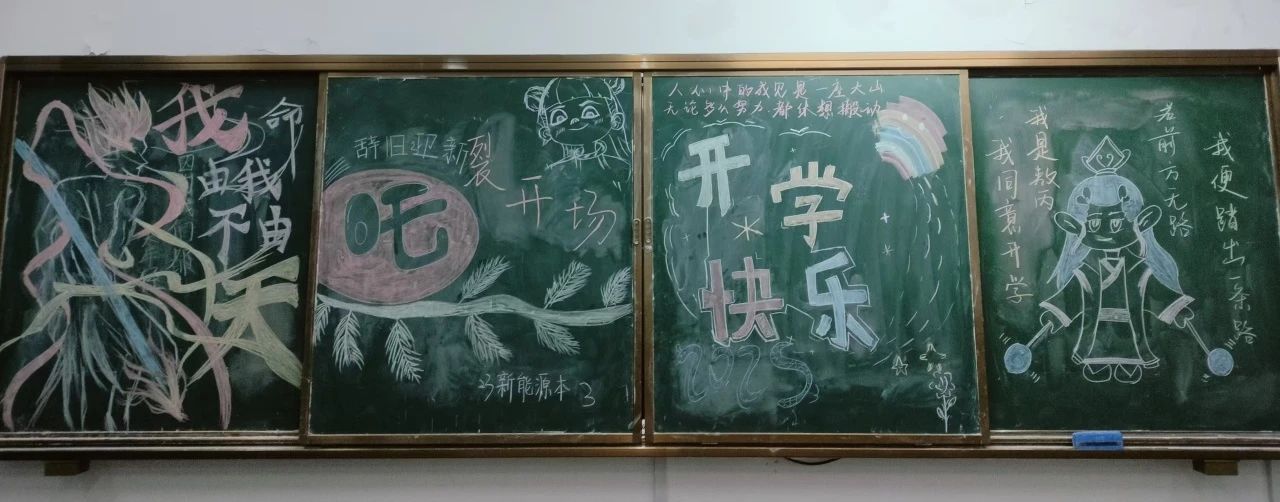 我命
由我
不由
天
辞旧迎新
吒
裂
开
场
新能源本
人心中的成见是一座大山
无论多么努力都休想搬动
开
学
快
乐
2025
我是敖丙
我同意开学
若前方无路
我便踏出一条路